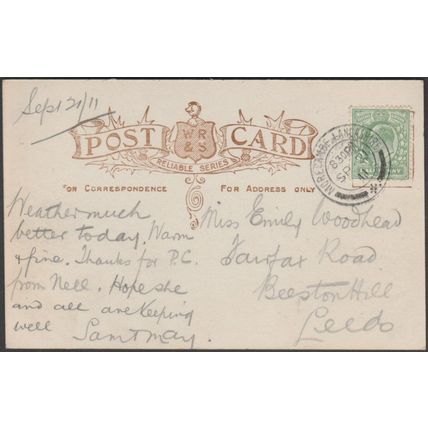 Sept 21/11
POST CARD
W R & S
RELIABLE SERIES
FOR CORRESPONDENCE
FOR ADDRESS ONLY
6 30 PM
SP 21
11
Weather much
better today. Warm
& fine. Thanks for P.C.
from Nell. Hope she
and all are keeping
well Sam & May.
Miss Emily Woodhead
Fairfax Road
Beeston Hill
Leeds